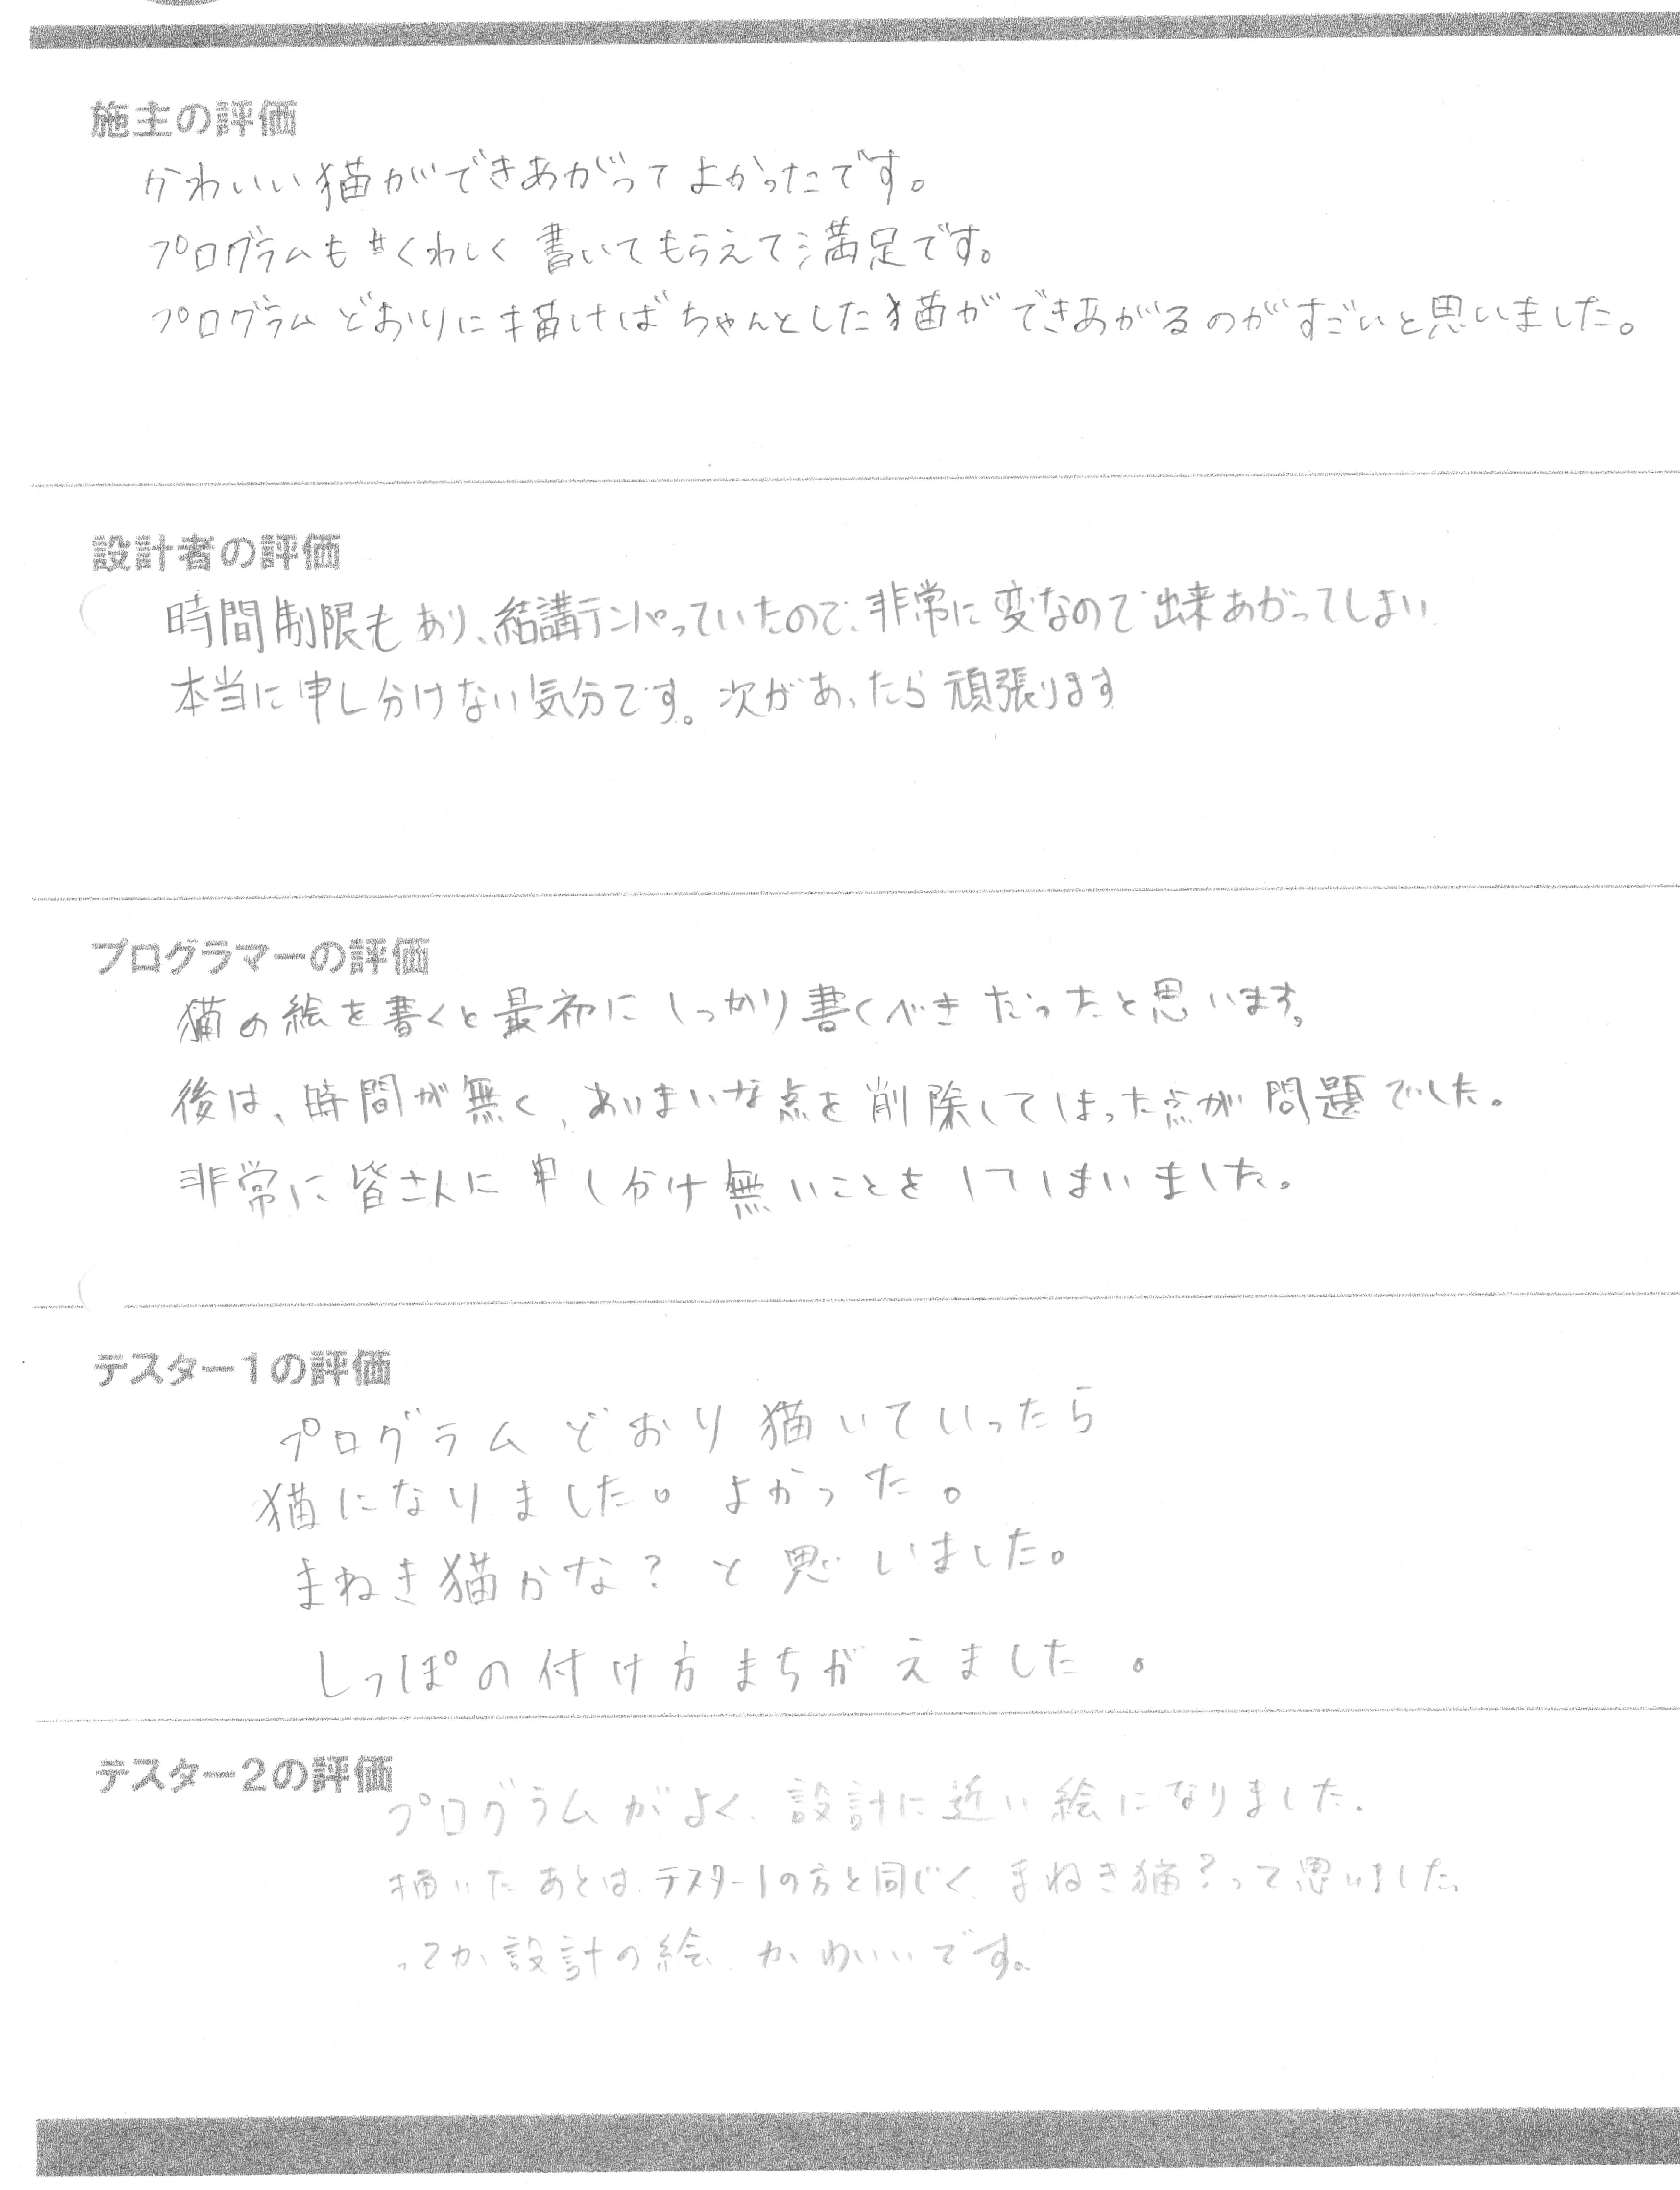 施主の評価
かわいい猫ができあがってよかったです。
プログラムもくわしく書いてもらえて満足です。
プログラムどおりに描けばちゃんとした猫ができあがるのがすごいと思いました。
設計者の評価
時間制限もあり、結講テンパっていたので、非常に変なので出来あがってしまい
本当に申し分けない気分です。次があったら頑張ります
プログラマーの評価
猫の絵を書くと最初にしっかり書くべきだったと思います。
後は、時間が無く、あいまいな点を削除してしまった点が問題でした。
非常に皆さんに申し分け無いことをしてしまいました。
テスター1の評価
プログラムどおり猫いていったら
猫になりました。よかった。
まねき猫かな?と思いました。
しっぽの付け方まちがえました。
テスター2の評価
プログラムがよく、設計に近い絵になりました.
描いたあとは、テスター1の方と同じく、まねき猫?って思いました。
ってか設計の絵、かわいいです。